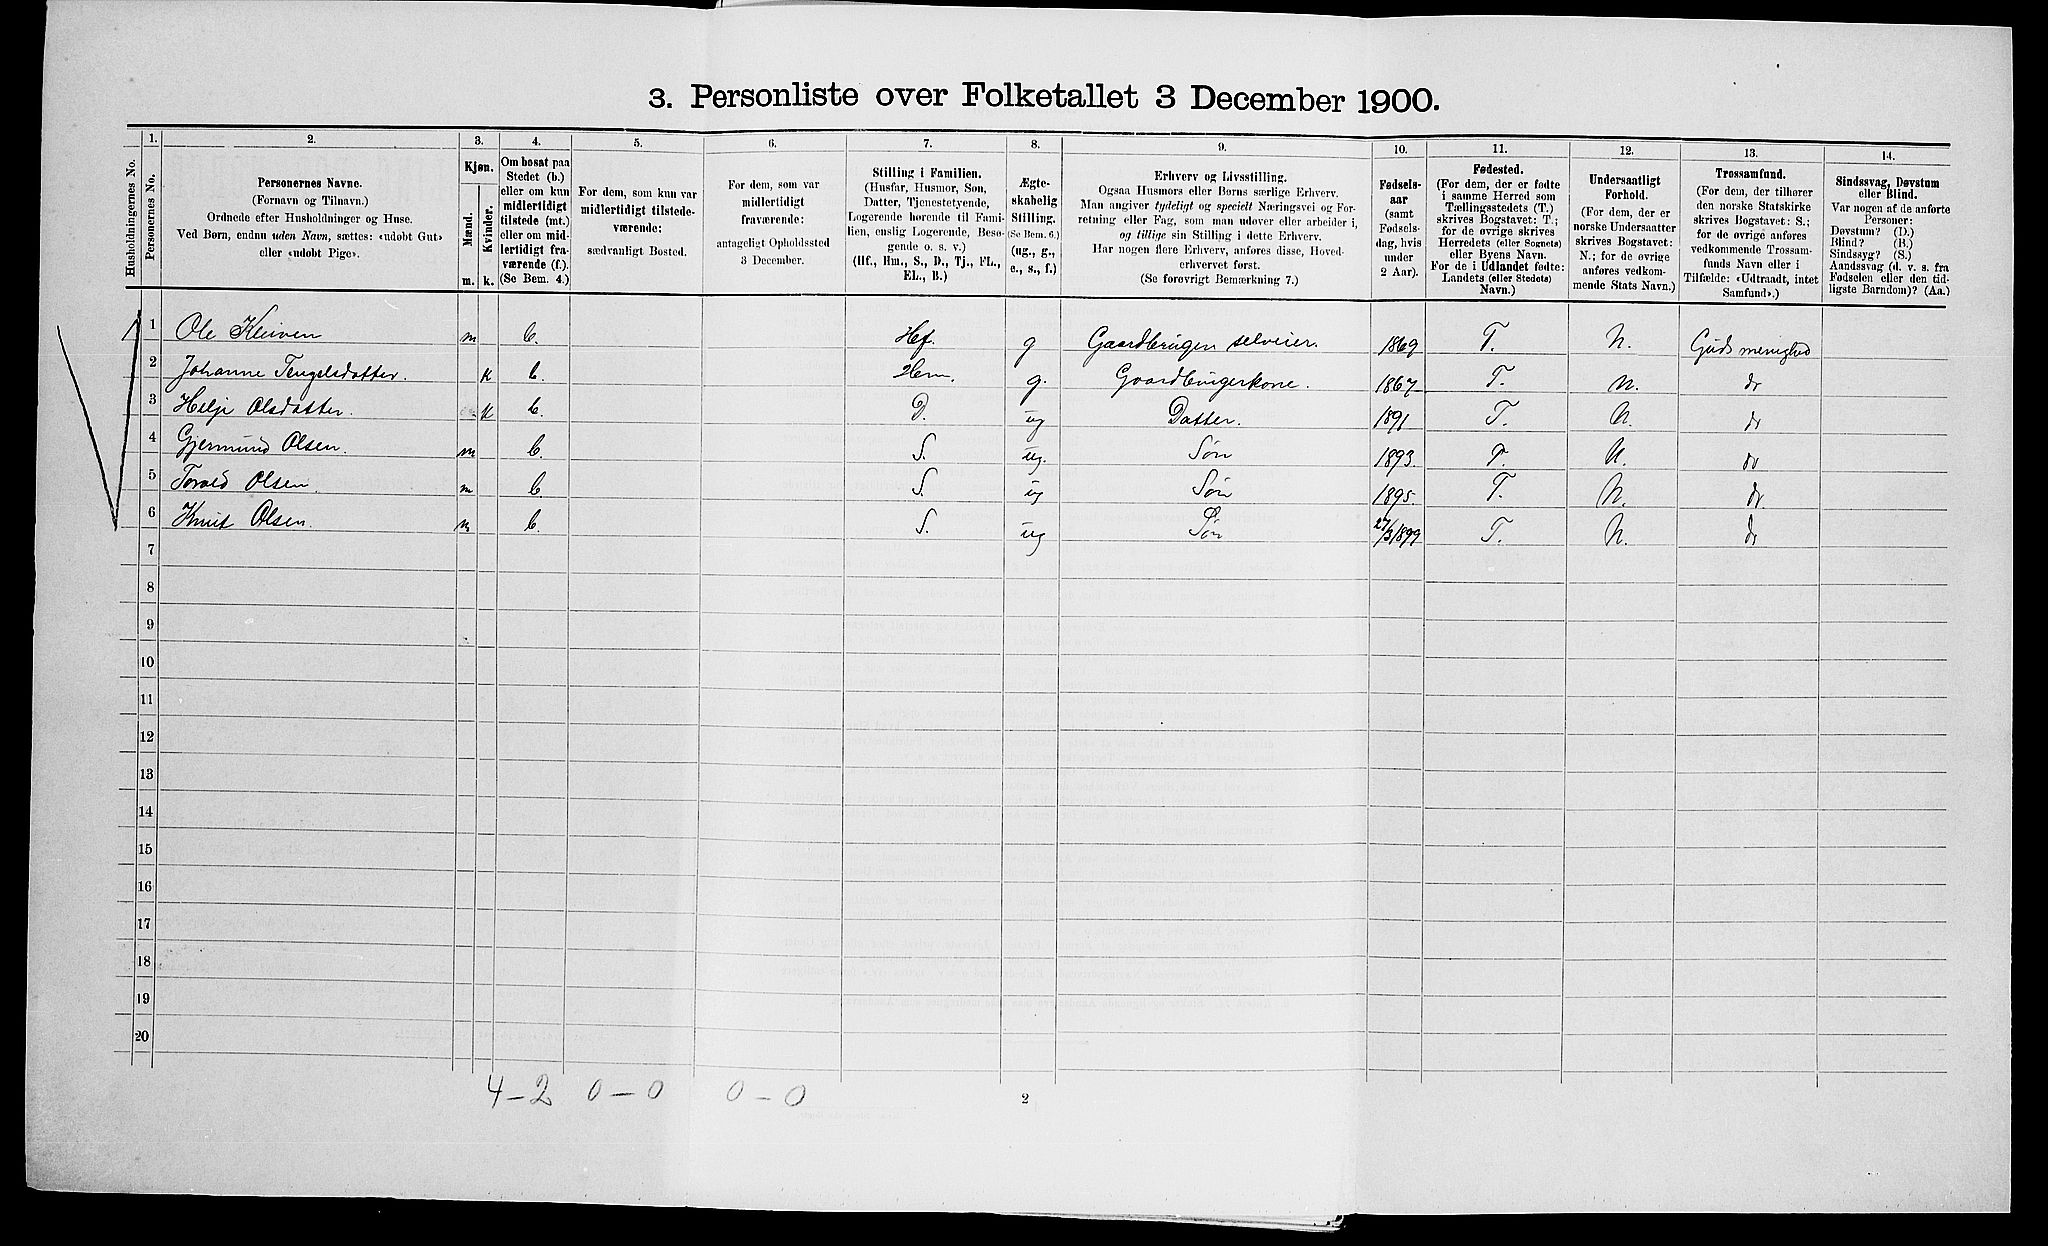 3. Personliste over Folketallet 3 December 1900.
Husholdningernes No.
1.
Personernes No.
2.
Personernes Navne.
(Fornavn og Tilnavn.)
Ordnede efter Husholdninger og Huse.
Ved Børn, endnu uden Navn, sættes: «udøbt Gut»
eller «udøbt Pige».
3.
Kjøn.
Mænd.
Kvinder.
m. k.
4.
Om bosat paa
Stedet (b.)
eller om kun
midlertidigt
tilstede (mt.)
eller om mid-
lertidigt fra-
værende (f.).
(Se Bem. 4.)
5.
For dem, som kun var
midlertidigt tilstede-
værende:
sædvanligt Bosted.
6.
For dem, som var
midlertidigt
fraværende:
antageligt Opholdssted
3 December.
7.
Stilling i Familien.
(Husfar, Husmor, Søn,
Datter, Tjenestetyende,
Logerende hørende til Fami-
lien, enslig Logerende, Besø-
gende o. s. v.)
(Hf., Hm., S., D., Tj., FL.,
EL., B.)
8.
Ægte-
skabelig
Stilling.
(Se Bem. 6.)
(ug., g.,
e., s., f.)
9.
Erhverv og Livsstilling.
Ogsaa Husmors eller Børns særlige Erhverv.
Man angiver tydeligt og specielt Næringsvei og For-
retning eller Fag, som man udøver eller arbeider i,
og tillige sin Stilling i dette Erhverv.
Har nogen flere Erhverv, anføres disse, Hoved-
erhvervet først.
(Se forøvrigt Bemærkning 7.)
10.
Fødsels-
aar
(samt
Fødsels-
dag, hvis
under
2 Aar).
11.
Fødested.
(For dem, der er fødte
i samme Herred som
Tællingsstedets (T.)
skrives Bogstavet: T.;
for de øvrige skrives
Herredets (eller Sognets)
eller Byens Navn.
For de i Udlandet fødte:
Landets (eller Stedets)
Navn.)
12.
Undersaatligt
Forhold.
(For dem, der er
norske Undersaatter
skrives Bogstavet:
N.; for de øvrige
anføres vedkom-
mende Stats Navn.)
13.
Trossamfund.
(For dem, der tilhører
den norske Statskirke
skrives Bogstavet: S.;
for de øvrige anføres
vedkommende Trossam-
funds Navn eller i
Tilfælde: «Udtraadt, intet
Samfund».)
14.
Sindssvag, Døvstum
eller Blind.
Var nogen af de anførte
Personer:
Døvstum? (D.)
Blind? (B.)
Sindssyg? (S.)
Aandssvag (d. v. s. fra
Fødselen eller den tid-
ligste Barndom)? (Aa.)
1 1 Ole Kleiven m b. Hf. g Gaardbruger selveier. 1869 T. N. Guds menighed
2 Johanne Tengelsdatter. k b. Hm. g. Gaardbrugerkone. 1867 T. N. do
3 Helje Olsdatter. k b. D. ug Datter. 1891 T. N. do
4 Gjermund Olsen. m b. S. ug. Søn 1893. T. N. do
5 Olsen. m b S. ug Søn 1895. T. N. do
6 Knut Olsen. m b. S. ug Søn 27/3 1899 T. N. do
7
8
9
10
11
12
13
14
15
16
17
18
19
20
4 – 2 0 – 0 0 – 0
2